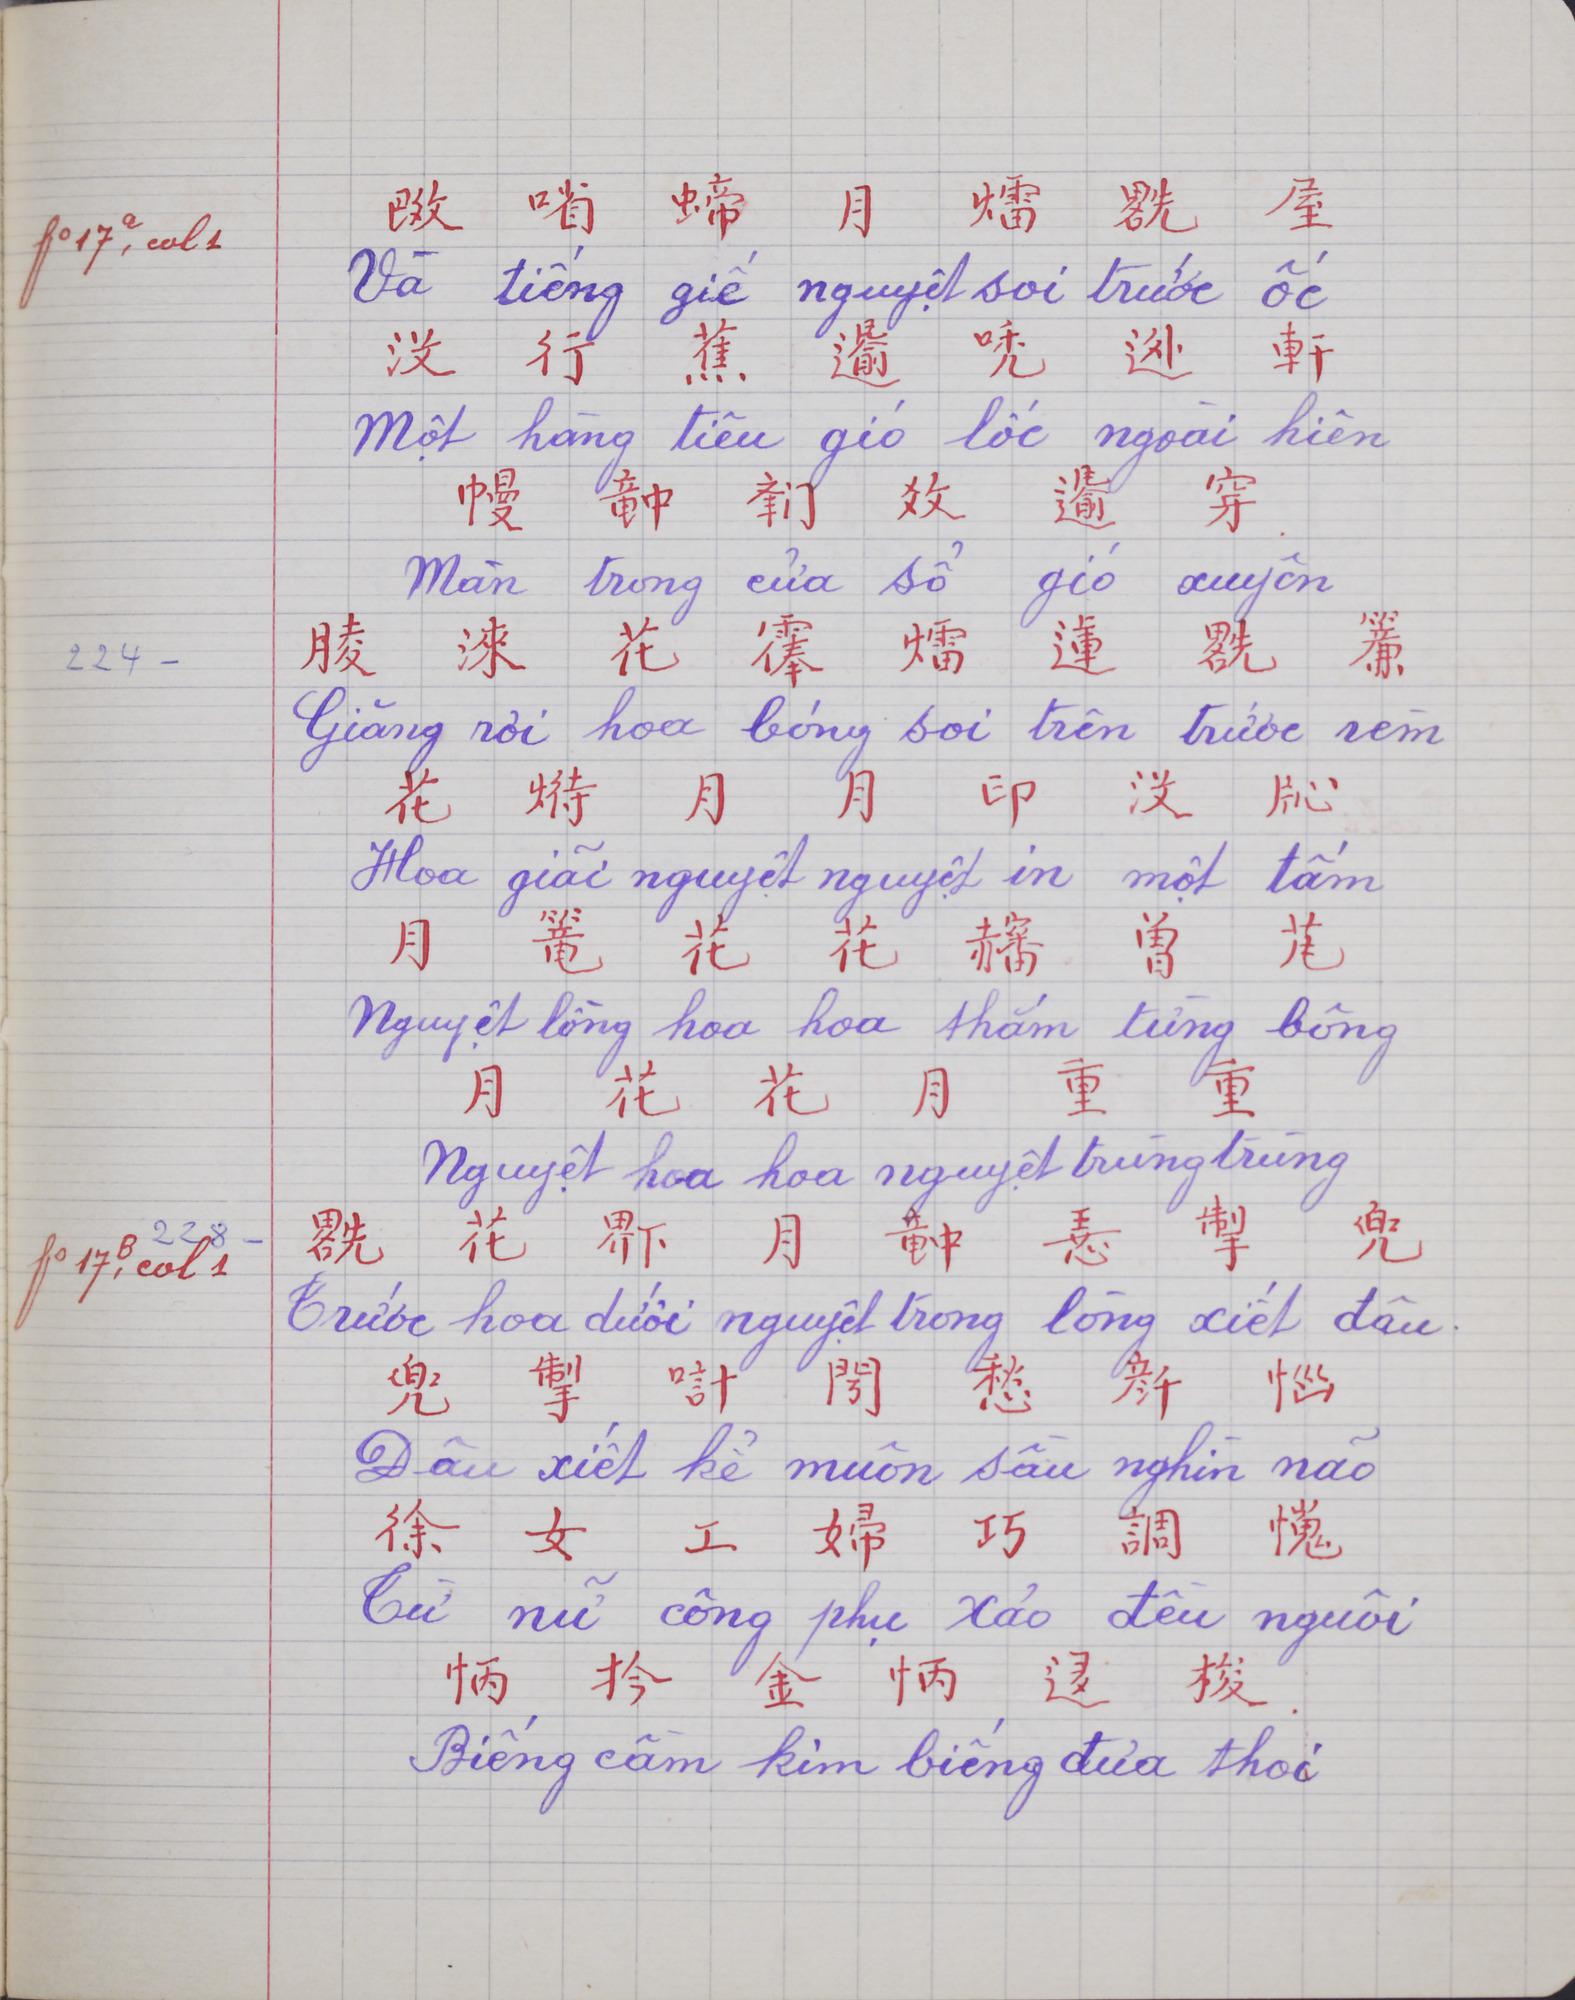 fo 17a, col 1
𠄧 㗂 蟀 月 𤐝 𠠩 屋
Và tiếng giế nguyệt soi trước ốc
没 行 蕉 𨗺 唴 外 軒
Một hàng tiêu gió lốc ngoài hiên
幔 𥪞 𨷯 效 𨗺 穿
Màn trong cửa sổ gió xuyên
224 -
花 𤐝 𨕭 簾
Giăng rơi hoa bóng soi trên trước rèm
花 月 月 印 没
Hoa giãi nguyệt nguyệt in một tấm
月 篭 花 花 曽 芼
Nguyệt lồng hoa hoa thắm từng bông
月 花 花 月 重 重
Nguyệt hoa hoa nguyệt trùng trùng
fo 17B, col 1
228 -
花 月 𥪞 兜
Trước hoa dưới nguyệt trong lòng xiết đâu.
兜 掣 計 愁 惱
Đâu xiết kể muôn sầu nghìn não
徐 女 工 婦 巧 調
Từ nữ công phụ xảo đều nguôi
怲 扲 金 怲 梭
Biếng cầm kim biếng đưa thoi